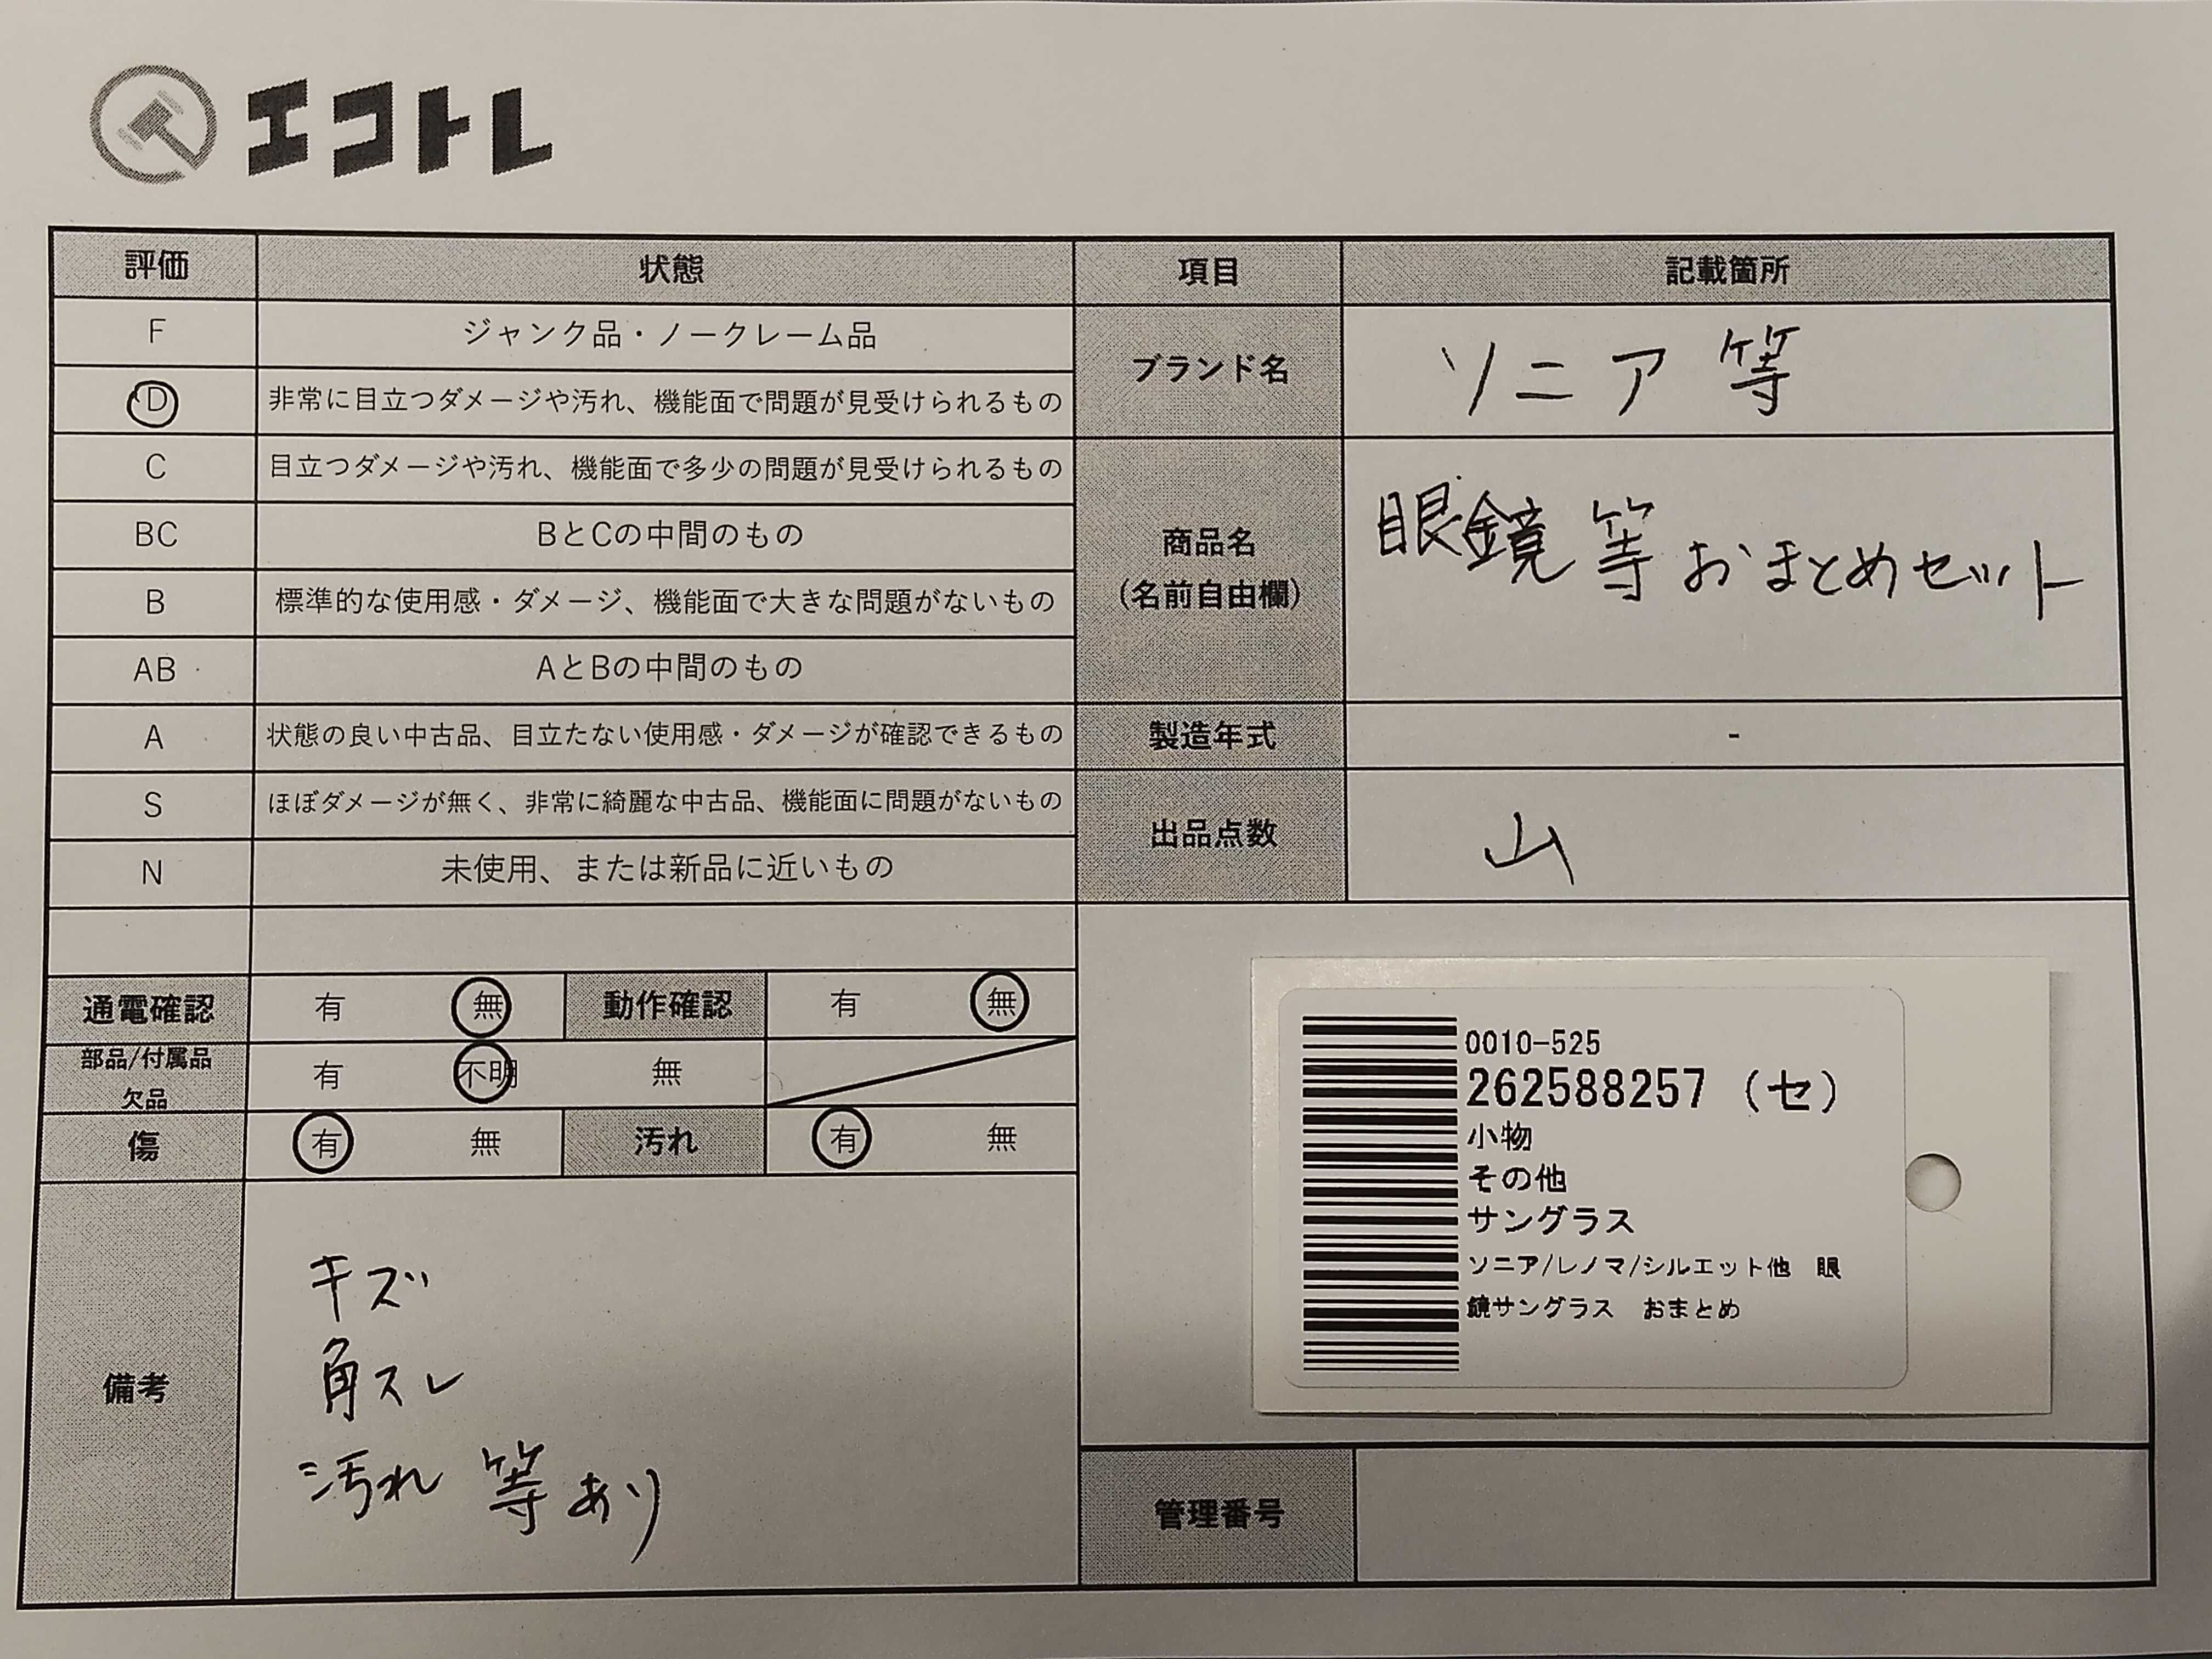 エコトレ
評価 状態 項目 記載箇所
F ジャンク品・ノークレーム品
D 非常に目立つダメージや汚れ、機能面で問題が見受けられるもの
ブランド名 ソニア等
C 目立つダメージや汚れ、機能面で多少の問題が見受けられるもの
BC BとCの中間のもの
B 標準的な使用感・ダメージ、機能面で大きな問題がないもの
AB AとBの中間のもの
商品名
(名前自由欄)
眼鏡等おまとめセット
A 状態の良い中古品、目立たない使用感・ダメージが確認できるもの
製造年式 -
S ほぼダメージが無く、非常に綺麗な中古品、機能面に問題がないもの
N 未使用、または新品に近いもの
出品点数 山
通電確認 有 無 動作確認 有 無
部品/付属品
欠品
有 不明 無
傷 有 無 汚れ 有 無
備考
キズ
角スレ
汚れ 等あり
0010-525
262588257 (セ)
小物
その他
サングラス
ソニア/レノマ/シルエット他 眼
鏡サングラス おまとめ
管理番号